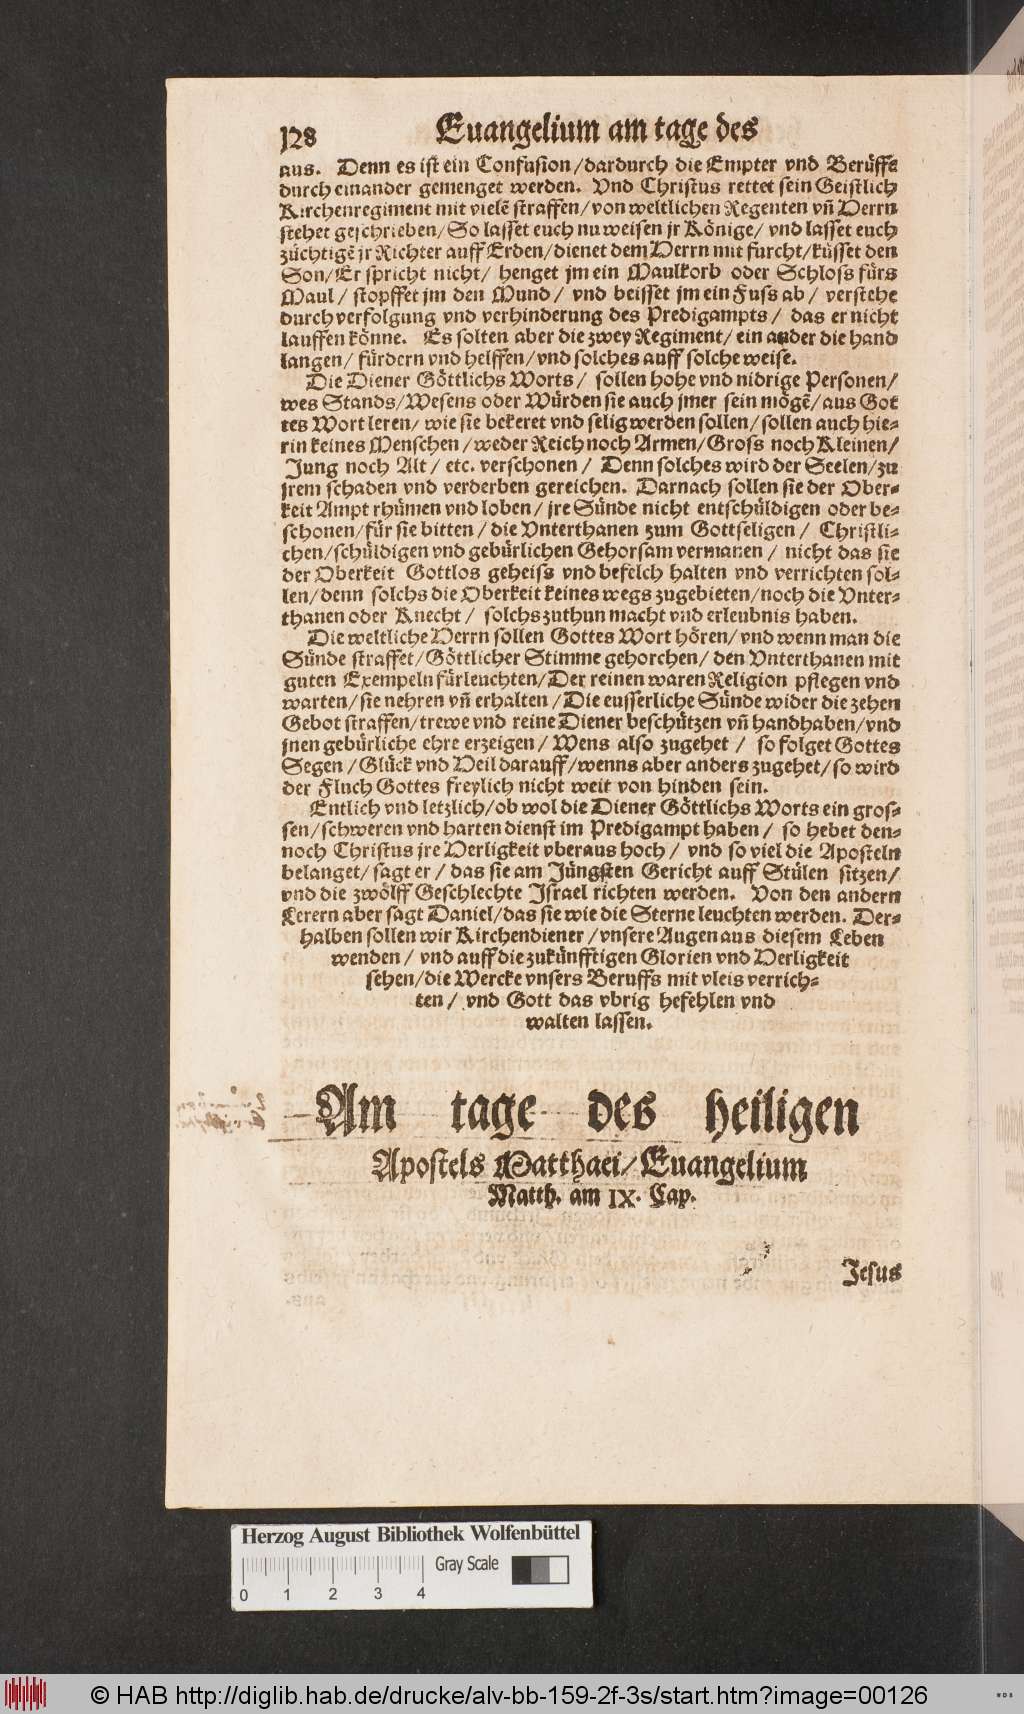 128 Euangelium am tage des
aus. Denn es ist ein Confusion/dardurch die Empter vnd Berüffe
durch einander gemenget werden. Vnd Christus rettet sein Geistlich
Kirchenregiment mit vielē straffen/von weltlichen Regenten vn̄ Herrn
stehet geschrieben/So lasset euch nu weisen jr Könige/vnd lasset euch
züchtigē jr Richter auff Erden/dienet dem Herrn mit furcht/küsset den
Son/Er spricht nicht/ henget jm ein Maulkorb oder Schloss fürs
Maul/ stopffet jm den Mund/ vnd beisset jm ein Fuss ab/ verstehe
durch verfolgung vnd verhinderung des Predigampts/ das er nicht
lauffen könne. Es solten aber die zwey Regiment/ein ander die hand
langen/ fürdern vnd helffen/vnd solches auff solche weise.
Die Diener Göttlichs Worts/ sollen hohe vnd nidrige Personen/
wes Stands/Wesens oder Würden sie auch jmer sein mögē/aus Got
tes Wort leren/wie sie bekeret vnd selig werden sollen/sollen auch hie-
rin keines Menschen/weder Reich noch Armen/Gross noch Kleinen/
Jung noch Alt/ etc. verschonen/ Denn solches wird der Seelen/zu
jrem schaden vnd verderben gereichen. Darnach sollen sie der Ober-
keit Ampt rhümen vnd loben/ jre Sünde nicht entschüldigen oder be-
schonen/für sie bitten/die Vnterthanen zum Gottseligen/ Christli-
chen/schüldigen vnd gebürlichen Gehorsam vermanen/ nicht das sie
der Oberkeit Gottlos geheiss vnd befelch halten vnd verrichten sol-
len/denn solchs die Oberkeit keines wegs zugebieten/noch die Vnter-
thanen oder Knecht/ solchs zuthun macht vnd erleubnis haben.
Die weltliche Herrn sollen Gottes Wort hören/vnd wenn man die
Sünde straffet/Göttlicher Stimme gehorchen/den Vnterthanen mit
guten Exempeln fürleuchten/Der reinen waren Religion pflegen vnd
warten/sie nehren vn̄ erhalten/Die eusserliche Sünde wider die zehen
Gebot straffen/trewe vnd reine Diener beschützen vn̄ handhaben/vnd
jnen gebürliche ehre erzeigen/Wens also zugehet/ so folget Gottes
Segen/Glück vnd Heil darauff/wenns aber anders zugehet/so wird
der Fluch Gottes freylich nicht weit von hinden sein.
Entlich vnd letzlich/ob wol die Diener Göttlichs Worts ein gros-
sen/schweren vnd harten dienst im Predigampt haben/ so hebet den-
noch Christus jre Herligkeit vberaus hoch/ vnd so viel die Aposteln
belanget/sagt er/das sie am Jüngsten Gericht auff Stülen sitzen/
vnd die zwölff Geschlechte Israel richten werden. Von den andern
Lerern aber sagt Daniel/das sie wie die Sterne leuchten werden. Der-
halben sollen wir Kirchendiener/vnsere Augen aus diesem Leben
wenden/ vnd auff die zukünfftigen Glorien vnd Herligkeit
sehen/die Wercke vnsers Beruffs mit vleis verrich-
ten/ vnd Gott das vbrig hefehlen vnd
walten lassen.
Am tage des heiligen
Apostels Matthaei/Euangelium
Matth. am IX. Cap.
Jesus
Herzog August Bibliothek Wolfenbüttel
Gray Scale
0 1 2 3 4
© HAB http://diglib.hab.de/drucke/alv-bb-159-2f-3s/start.htm?image=00126